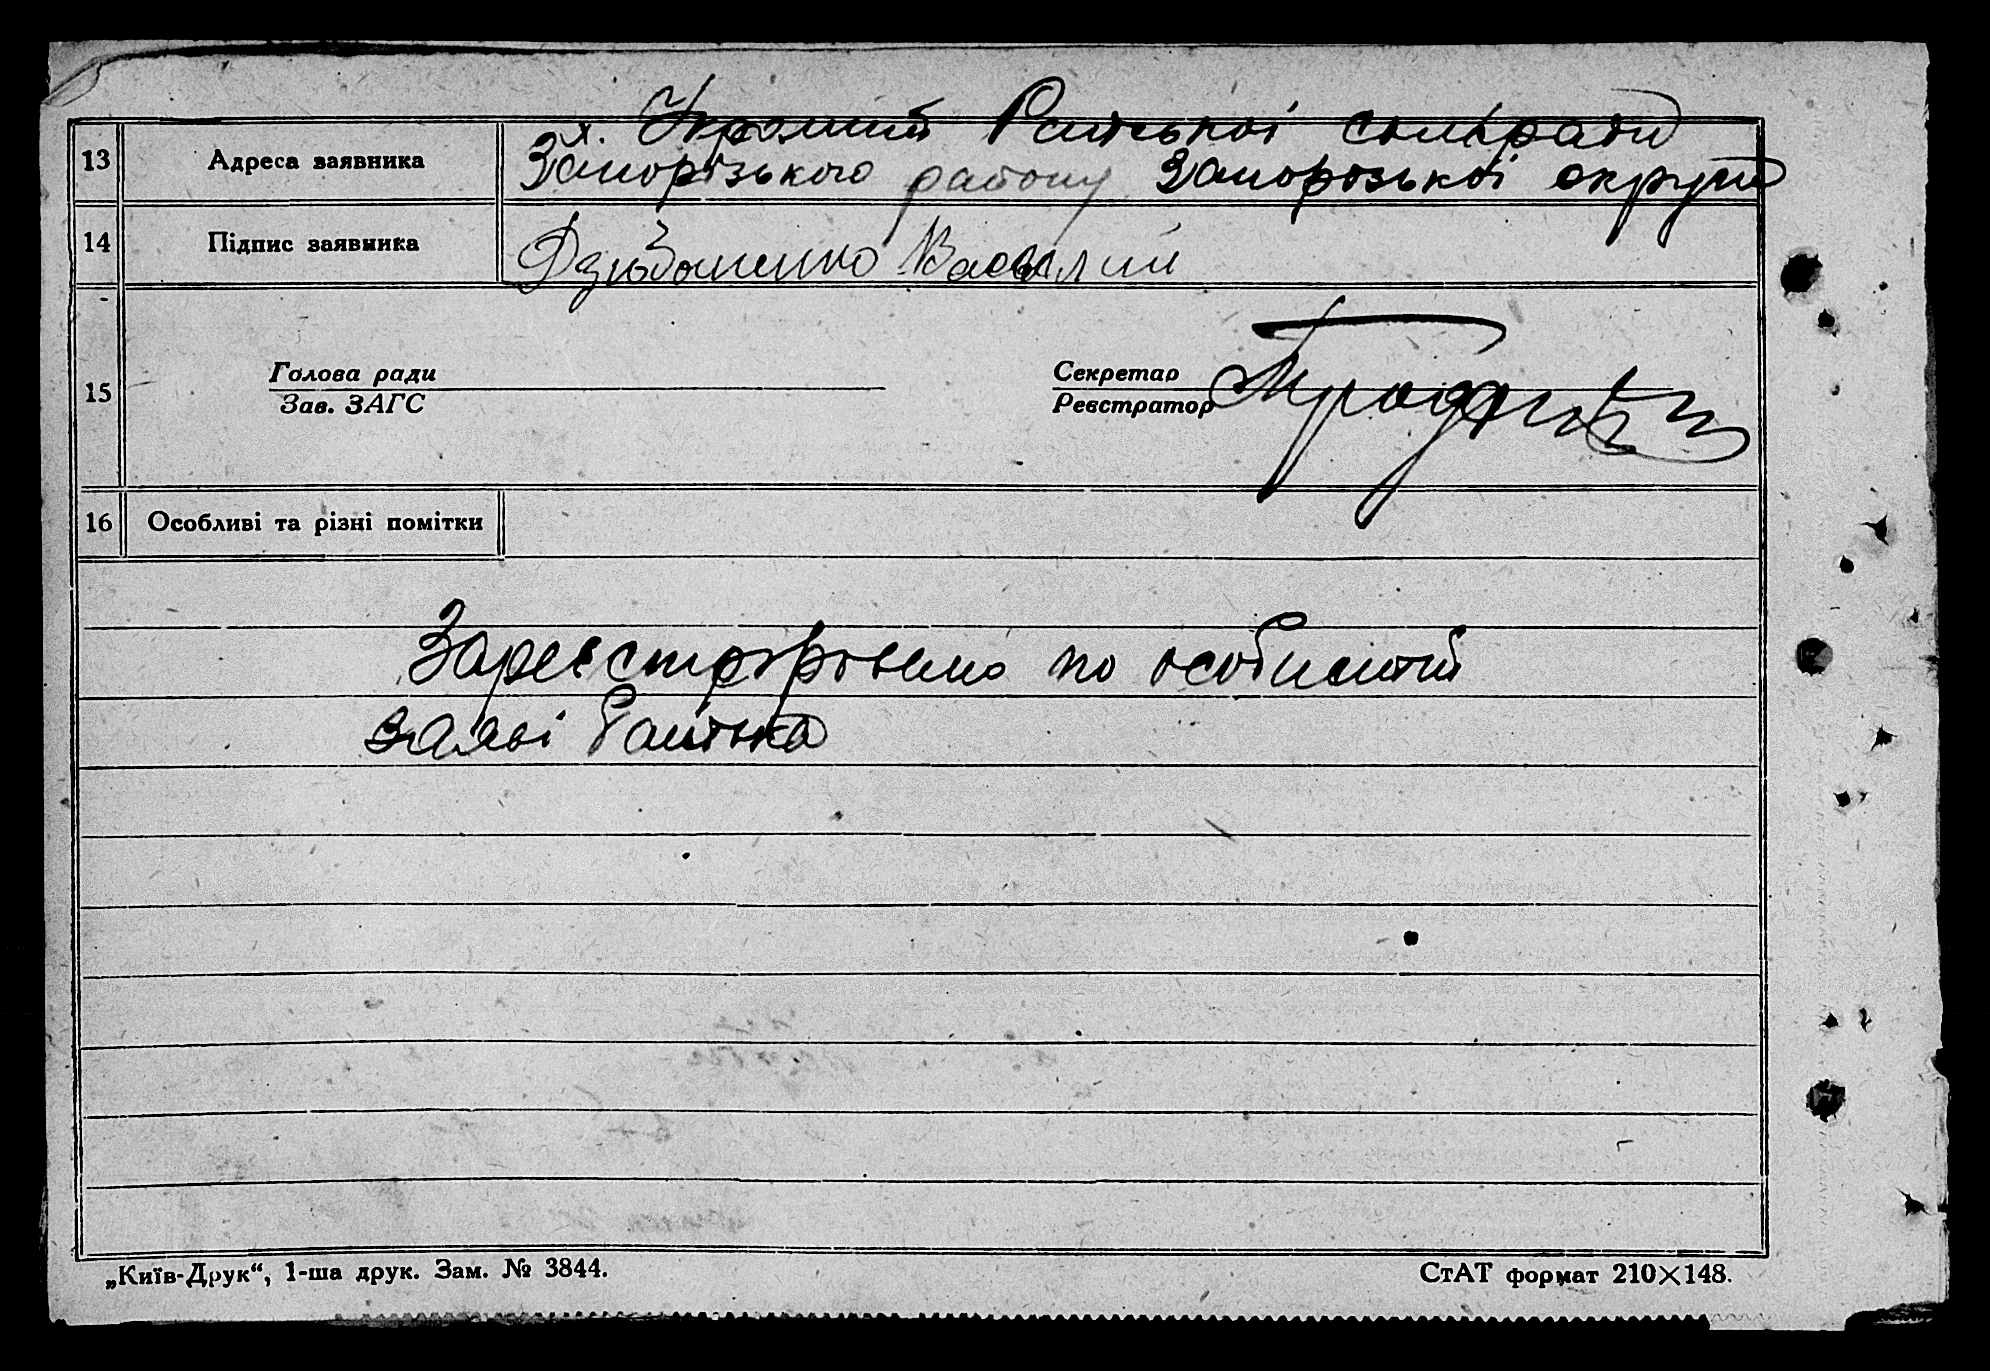 13 Адреса заявника х. Укромний Райської сільради
Запорізького району Запорозької округи
14 Підпис заявника Дзюбошенко Василий
15 Голова ради
Зав. ЗАГС
Секретар
Реєстратор
16 Особливі та різні помітки
Зареєстровано по особистій
заяві батька
„Київ-Друк“, 1-ша друк. Зам. № 3844.
СтАТ формат 210×148.